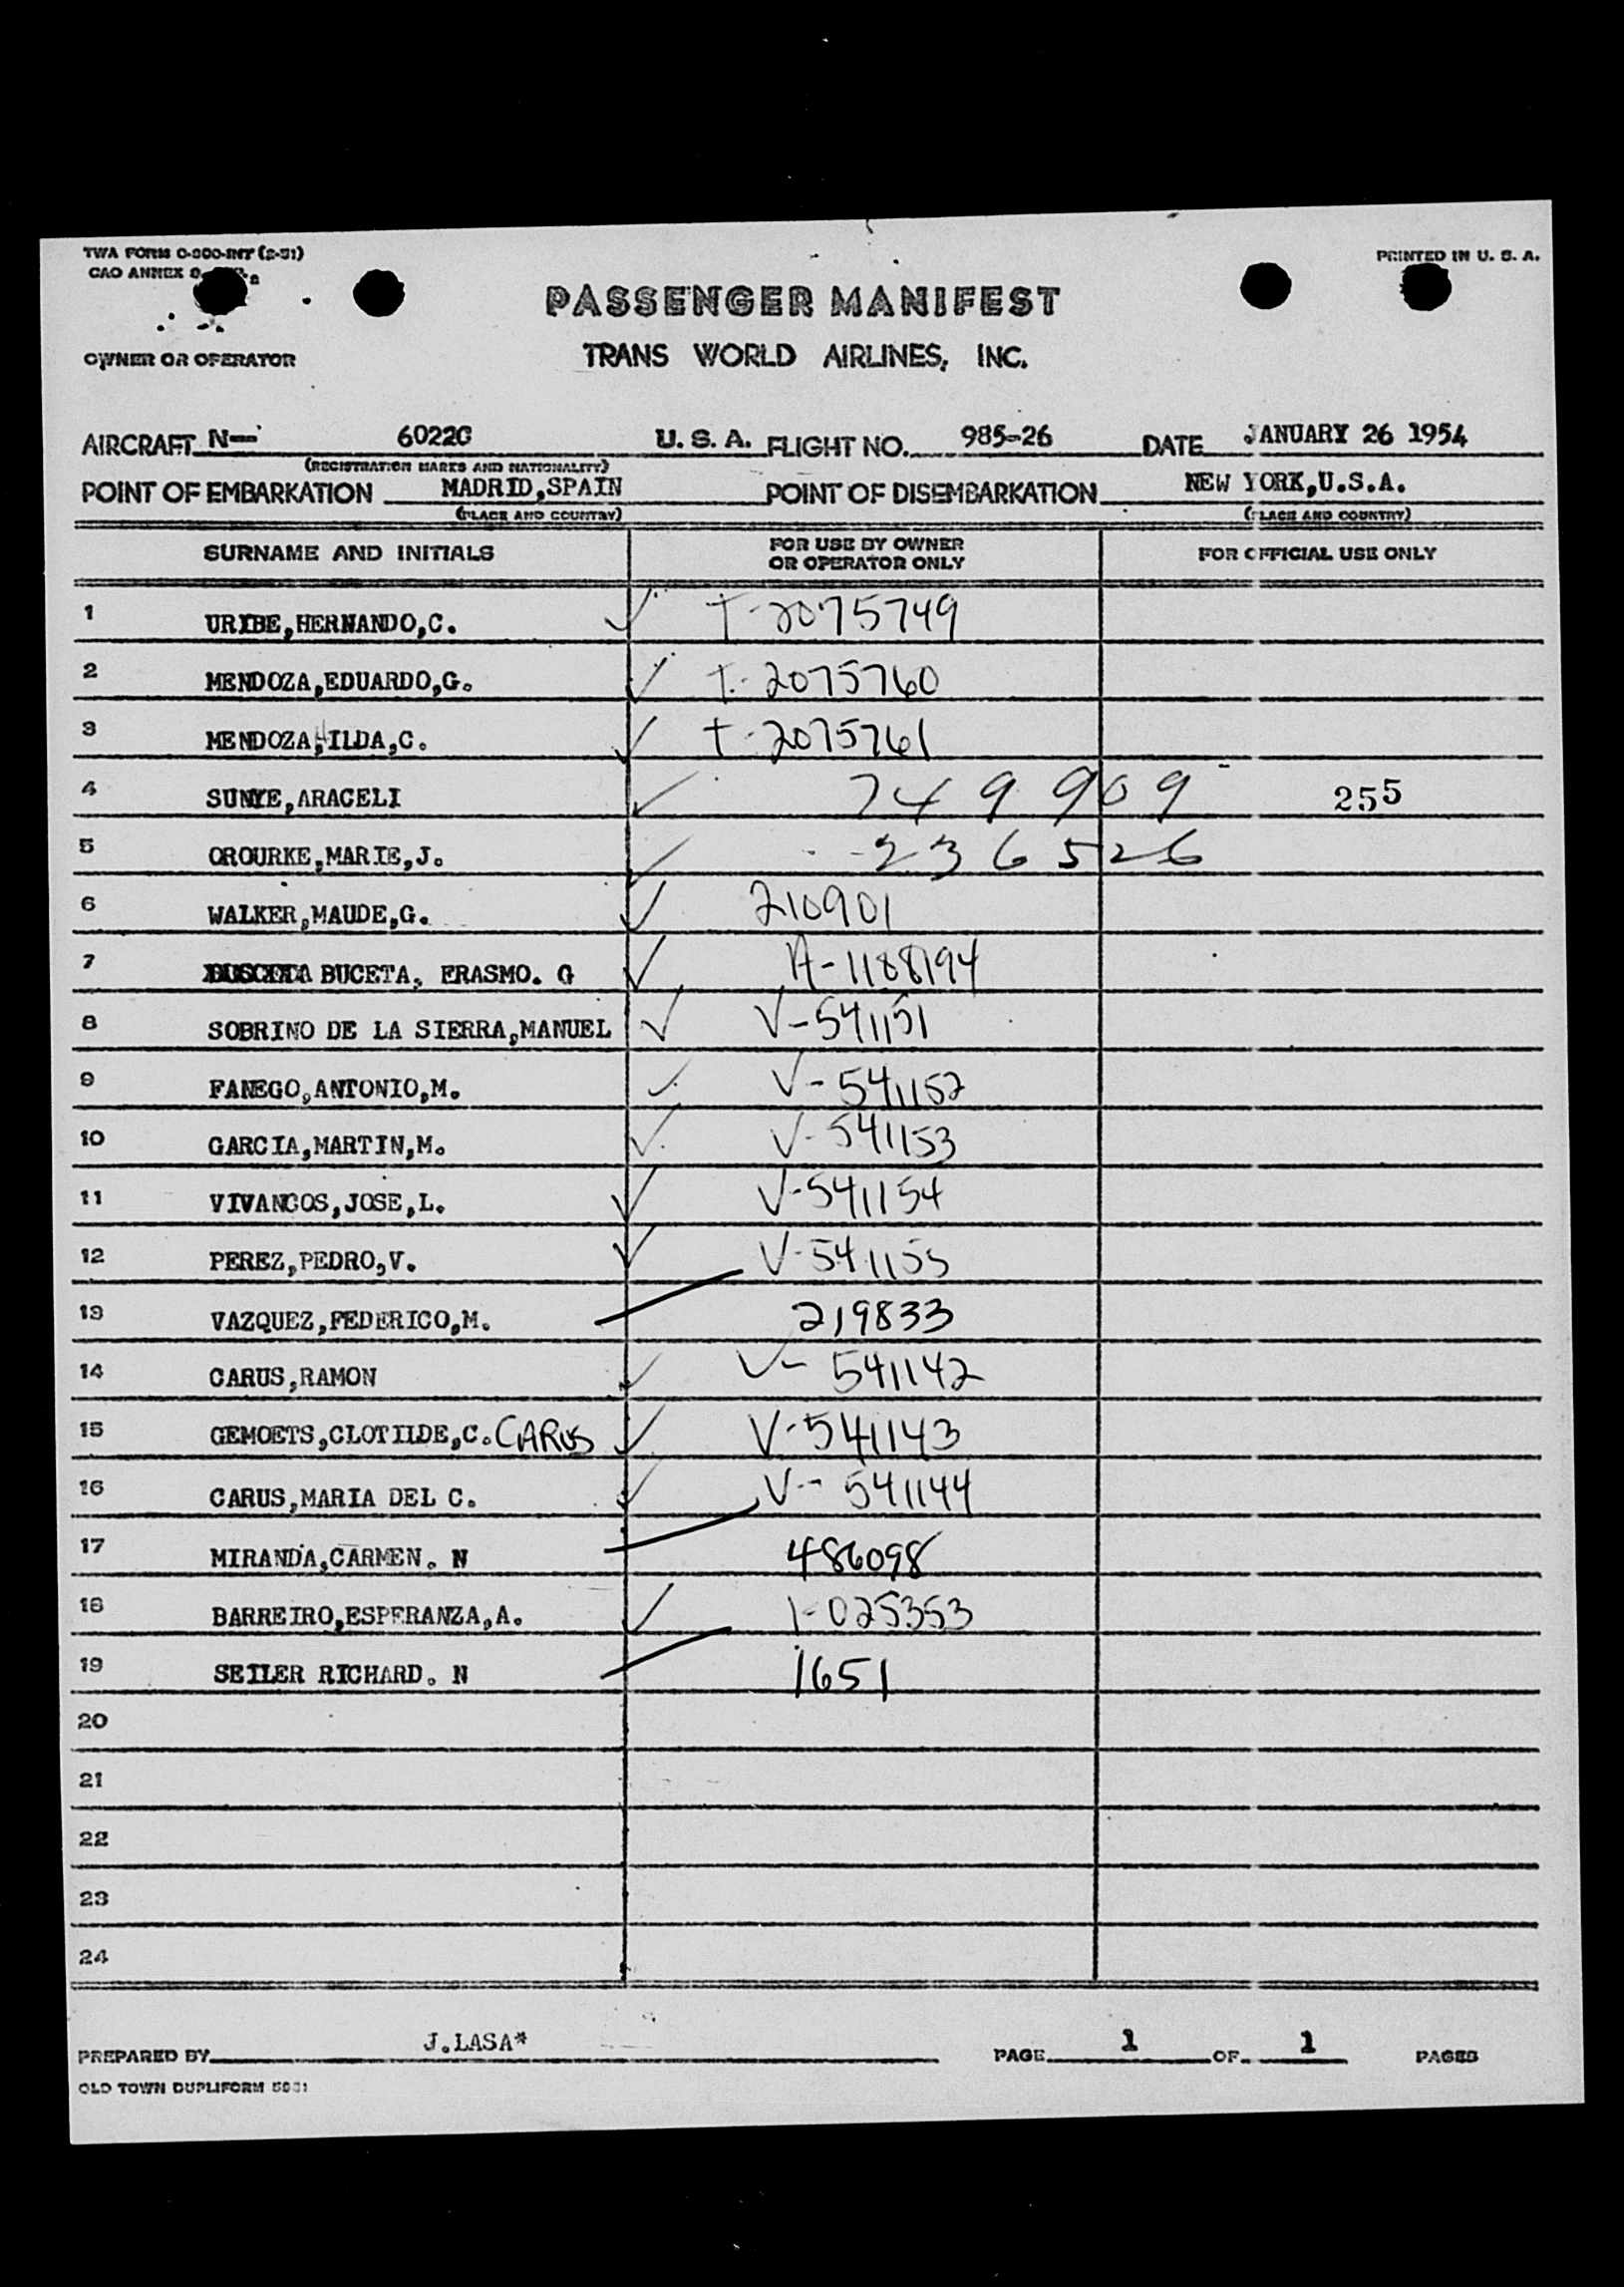 TWA FORM O-300-INT (2-51)
PRINTED IN U. S. A.
CAO ANNEX 9
PASSENGER MANIFEST
OWNER OR OPERATOR
TRANS WORLD AIRLINES, INC.
AIRCRAFT N— 6022C U. S. A. FLIGHT NO. 985-26 DATE JANUARY 26 1954
(REGISTRATION MARKS AND NATIONALITY)
POINT OF EMBARKATION MADRID,SPAIN POINT OF DISEMBARKATION NEW YORK,U.S.A.
(PLACE AND COUNTRY) (PLACE AND COUNTRY)
SURNAME AND INITIALS FOR USE BY OWNER OR OPERATOR ONLY FOR OFFICIAL USE ONLY
1 URIBE,HERNANDO,C. ✓ T-2075749
2 MENDOZA,EDUARDO,G. ✓ T-2075760
3 MENDOZA,HILDA,C. ✓ T-2075761
4 SUNYE,ARACELI ✓ 749909 255
5 OROURKE,MARIE,J. ✓ 236526
6 WALKER,MAUDE,G. ✓ 210901
7 BUCETA, ERASMO. G ✓ A-1188194
8 SOBRINO DE LA SIERRA,MANUEL ✓ V-541151
9 FANEGO,ANTONIO,M. ✓ V-541152
10 GARCIA,MARTIN,M. ✓ V-541153
11 VIVANCOS,JOSE,L. ✓ V-541154
12 PEREZ,PEDRO,V. ✓ V-541155
13 VAZQUEZ,FEDERICO,M. 219833
14 CARUS,RAMON ✓ V-541142
15 GEMOETS,CLOTILDE,C. CARUS ✓ V-541143
16 CARUS,MARIA DEL C. ✓ V-541144
17 MIRANDA,CARMEN. N 486098
18 BARREIRO,ESPERANZA,A. ✓ 1-025353
19 SEILER RICHARD. N 1651
20
21
22
23
24
PREPARED BY J.LASA* PAGE 1 OF 1 PAGES
OLD TOWN DUPLIFORM